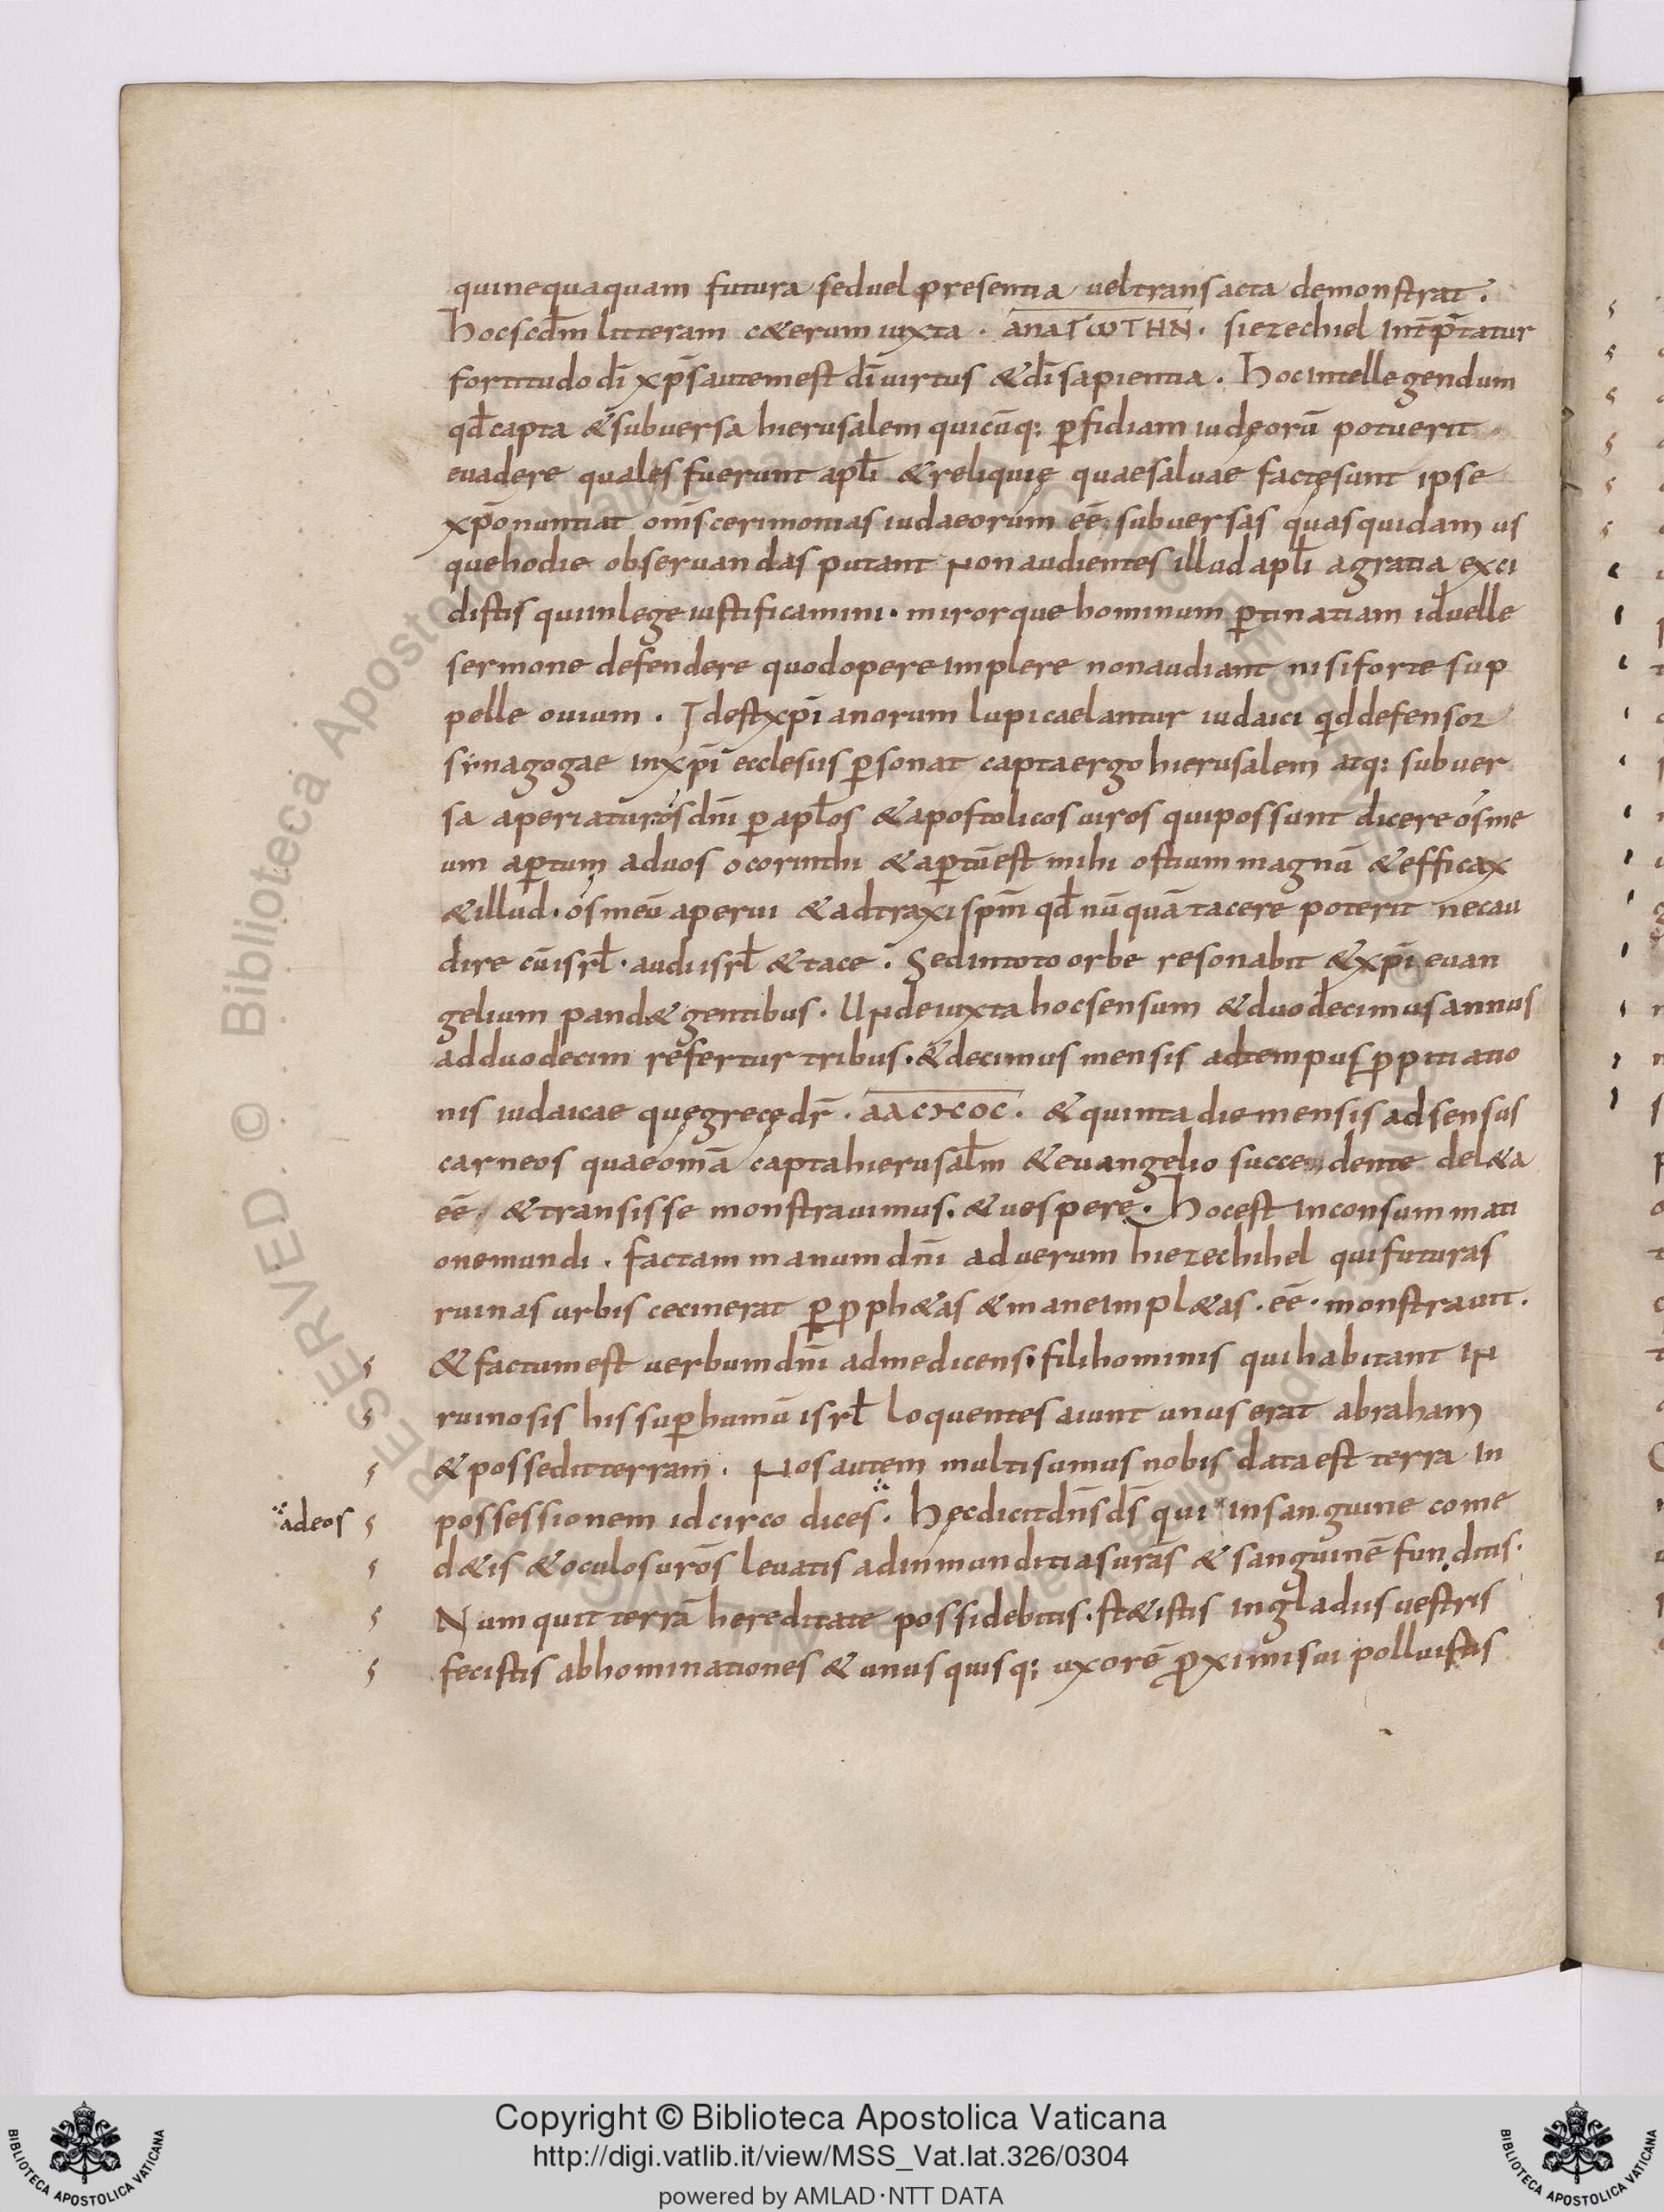 quinequaquam futura seduel presentia ueltransacta demonstrat.
hocscdm̄ litteram c&erum iuxta . ana Γ ω Γ H N . siezechiel int̄pr̄tatur
fortitudo dī xp̄s autem est dī uirtus & dī sapientia . hoc intellegendum
qd̄ capta & subuersa hierusalem quicūq; perfidiam iudęorū potuerit
euadere quales fuerunt apl̄i & reliquię quae saluae factę sunt ipse
xp̄o nuntiat om̄s cerimonias iudaeorum ēē subuersas quas quidam us
quehodie obseruandas putant non audientes illud apl̄i a gratia exci
distis qui in lege iustificamini . mirorque hominum ꝑtinatiam id uelle
sermone defendere quod opere implere non audiant nisi forte sup
pelle ouium . Id est xp̄ianorum lupi caelantur iudaici qd defensor
synagogae in xp̄i ecclesiis ꝑsonat capta ergo hierusalem atq; subuer
sa aperiatur os dn̄i ꝑ apl̄os & apostolicos uiros qui possunt dicere os me
um apꝑtum ad uos o corinthi & aꝑtū est mihi ostium magnū & efficax
& illud . os meū aperui & adtraxi spm̄ qd̄ nūquā tacere poterit nec au
dire cū isrl̄ . audi isrl̄ & tace . Sed in toto orbe resonabit & xp̄i euan
gelium pand& gentibus . Unde iuxta hoc sensum & duodecimus annus
ad duodecim refertur tribus . & decimus mensis ad tempus ꝓpitiatio
nis iudaicae quę gręce dr̄ . . & quinta die mensis ad sensus
carneos quae omā capta hierusal̄m & euangelio succedente del&a
ēē & transisse monstrauimus . & uespere . hoc est in consummati
one mundi . factam manum dn̄i ad uerum hiezechihel qui futuras
ruinas urbis cecinerat ꝑ ꝓph&as & mane impl&as . ēē . monstrauit .
& factum est uerbum dn̄i ad me dicens . fili hominis qui habitant in
ruinosis his suꝑ humū isrl̄ loquentes aiunt unus erat abraham
& possedit terram . Nos autem multi sumus nobis data est terra in
possessionem idcirco dices . hęc dicit dn̄s ds̄ qui in sanguine come
adeos
d&is & oculos uro̅s leuatis ad inmunditias uras̄ & sanguinē funditis .
Numquit terrā hereditate possidebitis . st&istis in gladiis uestris
fecistis abhominationes & unusquisq; uxorē ꝓximi sui polluistis
Copyright © Biblioteca Apostolica Vaticana
http://digi.vatlib.it/view/MSS_Vat.lat.326/0304
powered by AMLAD·NTT DATA
BIBLIOTECA APOSTOLICA VATICANA
BIBLIOTECA APOSTOLICA VATICANA